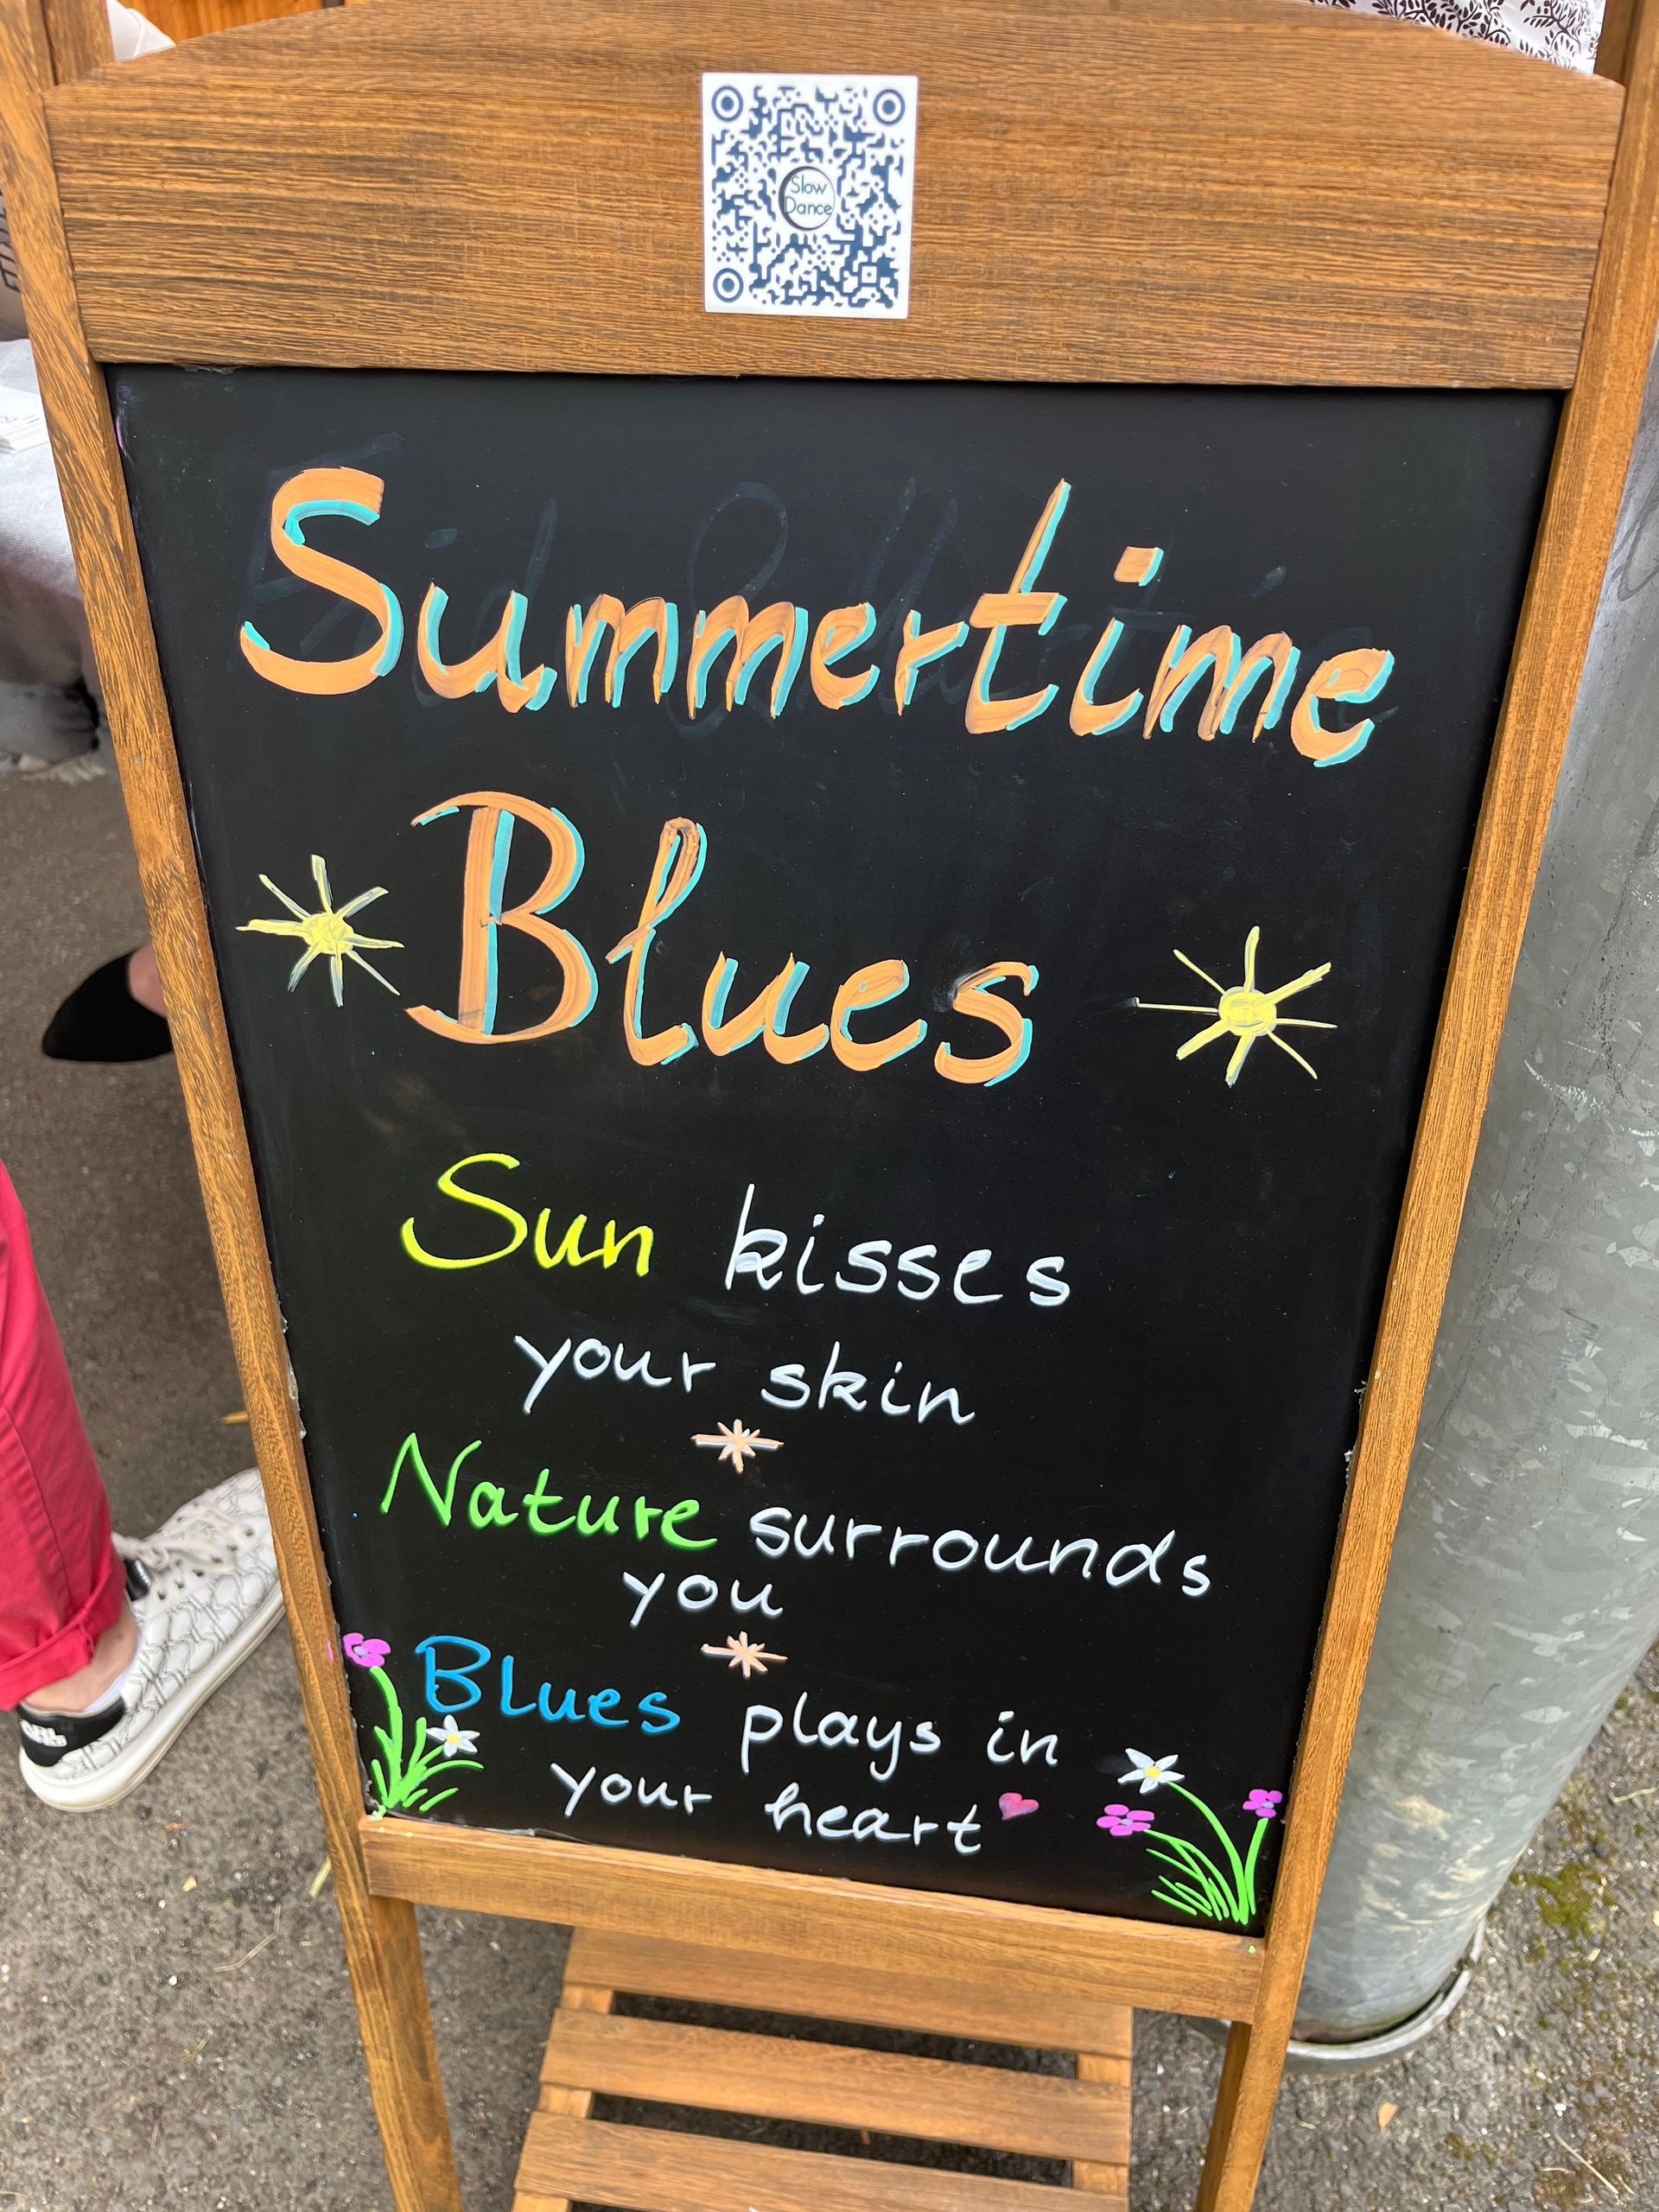 Slow
Dance
Summertime
Blues
Sun kisses
your skin
Nature surrounds
you
Blues plays in
your heart